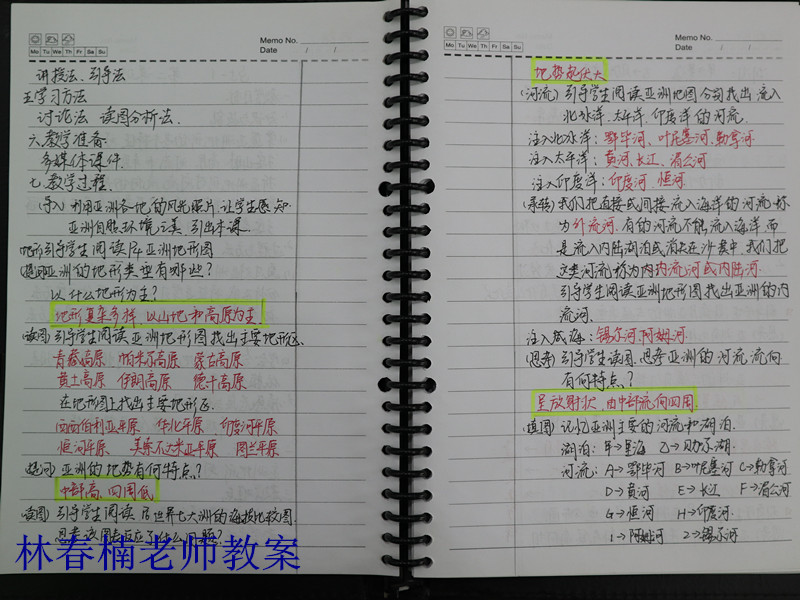 Memo No.
Mo Tu We Th Fr Sa Su
Date / /
讲授法、引导法
五学习方法
讨论法 读图分析法.
六.教学准备.
多媒体课件.
七.教学过程.
(导入) 利用亚洲各地的风光照片,让学生感知
亚洲自然环境之美,引出本课.
地形引导学生阅读 亚洲地形图
(提问)亚洲的地形类型有哪些?
以什么地形为主?
地形复杂多样,以山地和高原为主
(读图) 引导学生阅读亚洲地形图找出主要地形区.
青藏高原 帕米尔高原 蒙古高原
黄土高原 伊朗高原 德干高原
在地形图上找出主要地形区.
西西伯利亚平原 华北平原 印度河平原
恒河平原 美索不达米亚平原 图兰平原
(提问)亚洲的地势有何特点?
中部高、四周低
(读图) 引导学生阅读 世界七大洲的海拔比较图.
思考该图表反应了什么问题?
林春楠老师教案
Memo No.
Mo Tu We Th Fr Sa Su
Date / /
地势起伏大
(河流) 引导学生阅读亚洲地图分别找出流入
北冰洋.太平洋.印度洋的河流.
注入北冰洋: 鄂毕河、叶尼塞河.勒拿河
注入太平洋: 黄河、长江、湄公河
注入印度洋: 印度河、恒河
(承转) 我们把直接或间接流入海洋的河流,称
为外流河.有的河流不能流入海洋,而
是流入内陆湖泊或消失在沙漠中,我们把
这类河流称为内内流河或内陆河.
引导学生阅读亚洲地形图找出亚洲的内
流河.
注入咸海: 锡尔河.阿姆河
(思考) 引导学生读图,思考亚洲的河流流向
有何特点?
呈放射状,由中部流向四周.
(填图) 记忆亚洲主要的河流和湖泊.
湖泊: 甲→里海 乙→贝加尔湖.
河流: A→鄂毕河 B→叶尼塞河 C→勒拿河
D→黄河 E→长江 F→湄公河
G→恒河 H→印度河.
1→阿姆河 2→锡尔河